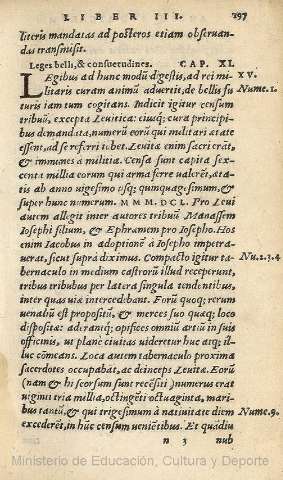 LIBER III. 197
literis mandatas ad posteros etiam obseruan-
das transmisit.
Leges belli, & consuetudines. CAP. XI.
LEgibus ad hunc modũ digestis, ad rei mi- XV.
litaris curam animũ aduertit, de bellis fu Nume.1.
turis iam tum cogitans. Indicit igitur censum
tribuũ, excepta Leuitica: eiusq; cura principi-
bus demandata, numerũ eorũ qui militari ætate
essent, ad se referri iubet. Leuitæ enim sacri erãt,
& immunes a militia. Censa sunt capita sex-
centa millia eorum qui arma ferre valerẽt, æta-
tis ab anno uigesimo usq; quinquagesimum, &
super hunc numerum. M M M DCL. Pro Leui
autem allegit inter autores tribuũ Manassem
Iosephi filium, & Ephramem pro Iosepho. Hos
enim Iacobus in adoptionẽ à Iosepho impetra-
uerat, sicut suprà diximus. Compacto igitur ta- Nu.2.3.4
bernaculo in medium castrorũ illud receperunt,
tribus tribubus per latera singula tendentibus,
inter quas uiæ intercedebant. Forũ quoq; rerum
uenaliũ est propositũ, & merces suo quæq; loco
dispositæ: aderantq; opifices omniũ artiũ in suis
officinis, ut planè ciuitas uideretur huc atq; il-
luc cõmeans. Loca autem tabernaculo proxima
sacerdotes occupabãt, ac deinceps Leuitæ. Eorũ
(nam & hi seorsum sunt recẽsiti) numerus erat
uiginti tria millia, octingẽti octuaginta, mari-
bus tantũ, & qui trigesimum à natiuitate diem Nume.9.
excederẽt, in hũc censum uenientibus. Et quãdiu
n 3 nub
Ministerio de Educación, Cultura y Deporte